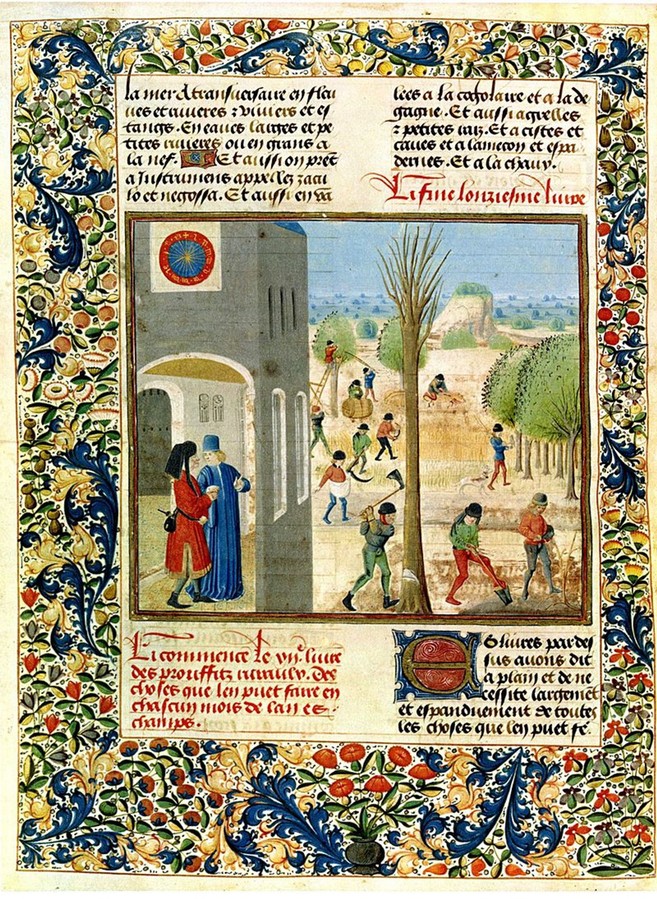 la mer et transuersaire en fleu
ues et riuieres et viuiers et es
tangs. En eaues larges et pe
tites riuieres ou en grans a
la nef. Et aussi on pret
a Instrumens appellez iacu
lo et negossa. Et aussi en va
lees a la
gagne. Et aussi a
et petites Et a cistes et
caues et a lamecon et espa
dernes. Et a la chauv.
Ci fine lonziesme liure
Ci commence le liure
des prouffitz ruraulx. Des
choses que len puet faire en
chascun mois de lan es
champs.
Es liures par des
sus auons dit
a plain et de ne
cessite largement
et espanduement de toutes
les choses que len puet fe.